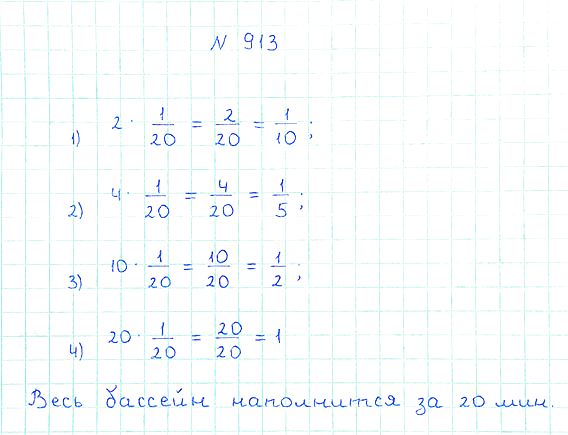 N 913
1) 2 · 1/20 = 2/20 = 1/10 ;
2) 4 · 1/20 = 4/20 = 1/5 ;
3) 10 · 1/20 = 10/20 = 1/2 ;
4) 20 · 1/20 = 20/20 = 1
Весь бассейн наполнится за 20 мин.